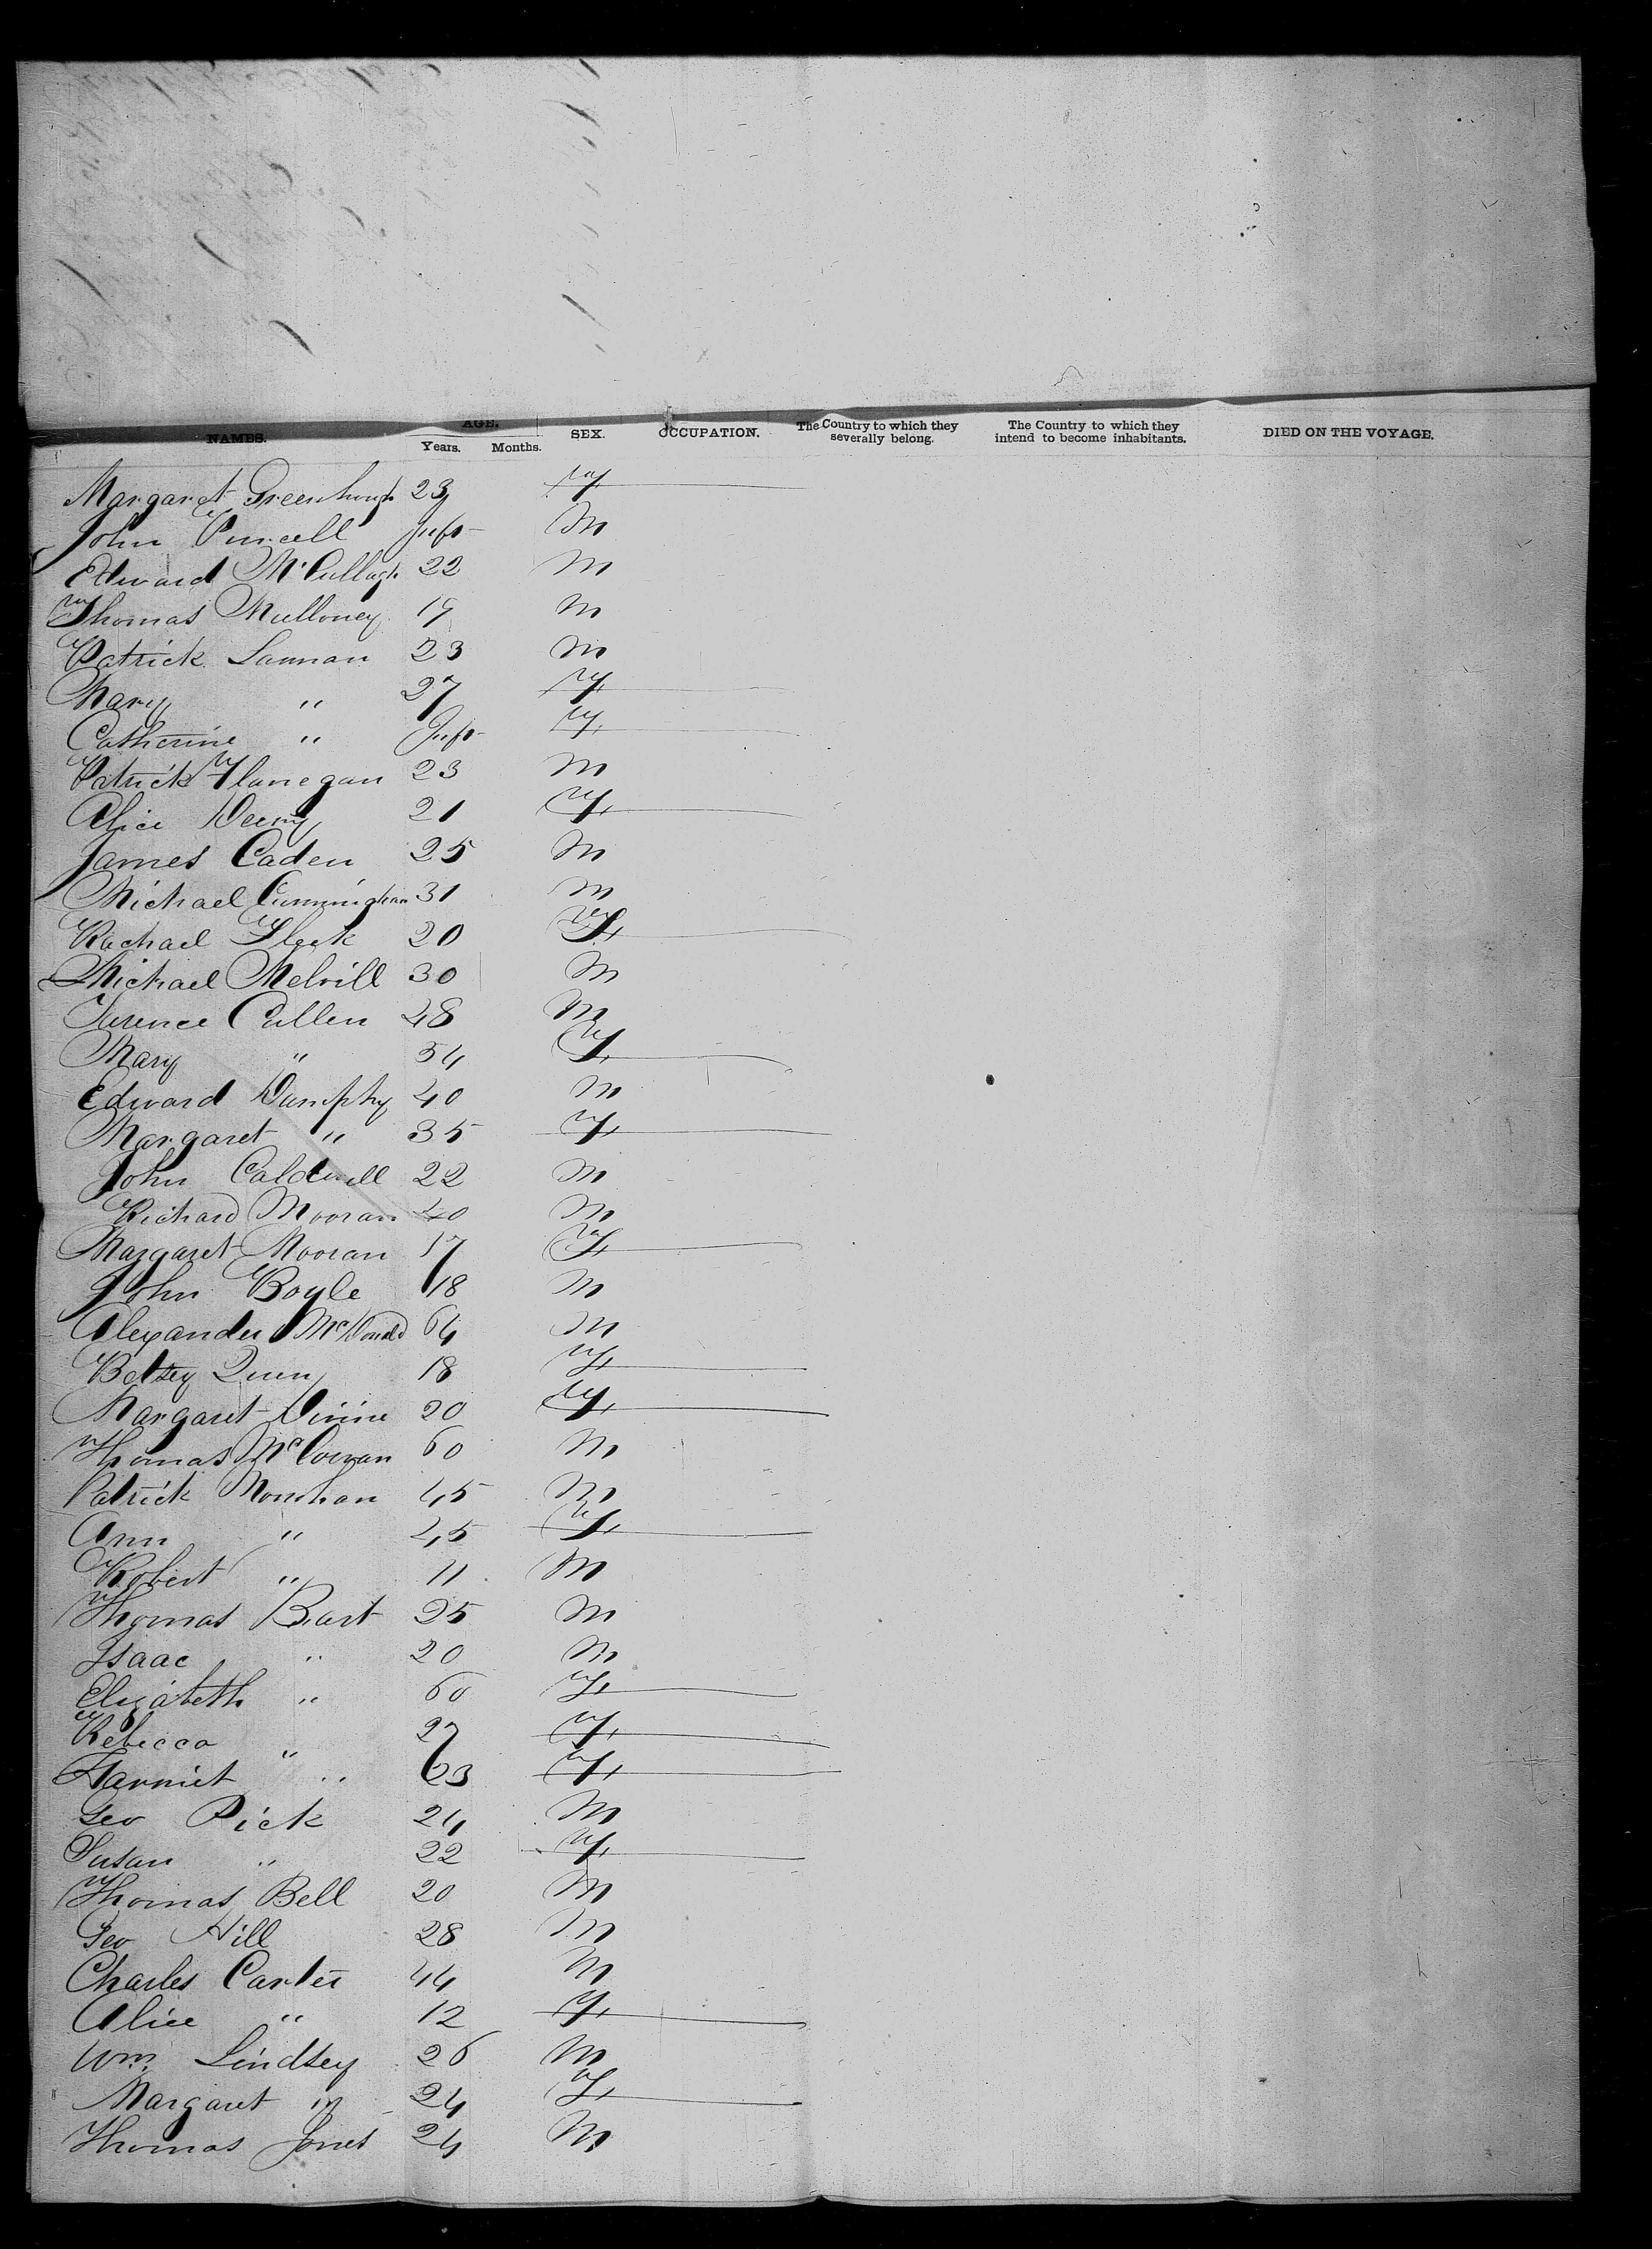 NAMES. AGE. Years. Months. SEX. OCCUPATION. The Country to which they severally belong. The Country to which they intend to become inhabitants. DIED ON THE VOYAGE.
Margaret Greenhough 23 F
John Purcell Inft M
Edward McCullagh 22 M
Thomas Mulloney 19 M
Patrick Lannan 23 M
Mary " 27 F
Catherine " Inft F
Patrick Flanegan 23 M
Alice Deery 21 F
James Caden 25 M
Michael Cunningham 31 M
Rachael Fleek 20 F
Michael Melvill 30 M
Terence Cullen 48 M
Mary " 54 F
Edward Dumphy 40 M
Margaret " 35 F
John Caldwell 22 M
Richard Mooran 40 M
Margaret Mooran 17 F
John Boyle 18 M
Alexander McDonald 64 M
Betsey Quen 18 F
Margaret Divine 20 F
Thomas 60 M
Patrick Monohan 45 M
Ann " 45 F
Robert " 11 M
Thomas Bart 25 M
Isaac " 20 M
Elizabeth " 60 F
Rebecca " 27 F
Harriet " 63 F
Geo Pick 24 M
Susan " 22 F
Thomas Bell 20 M
Geo Hill 28 M
Charles Carter 44 M
Alice " 12 F
Wm Lindsey 26 M
Margaret " 24 F
Thomas Jones 24 M